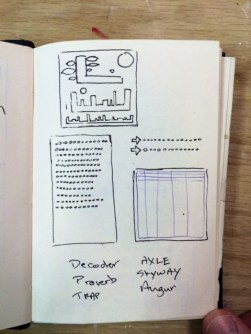 Decoder
Proverb
TRAP
AXLE
SKYWAY
Augur